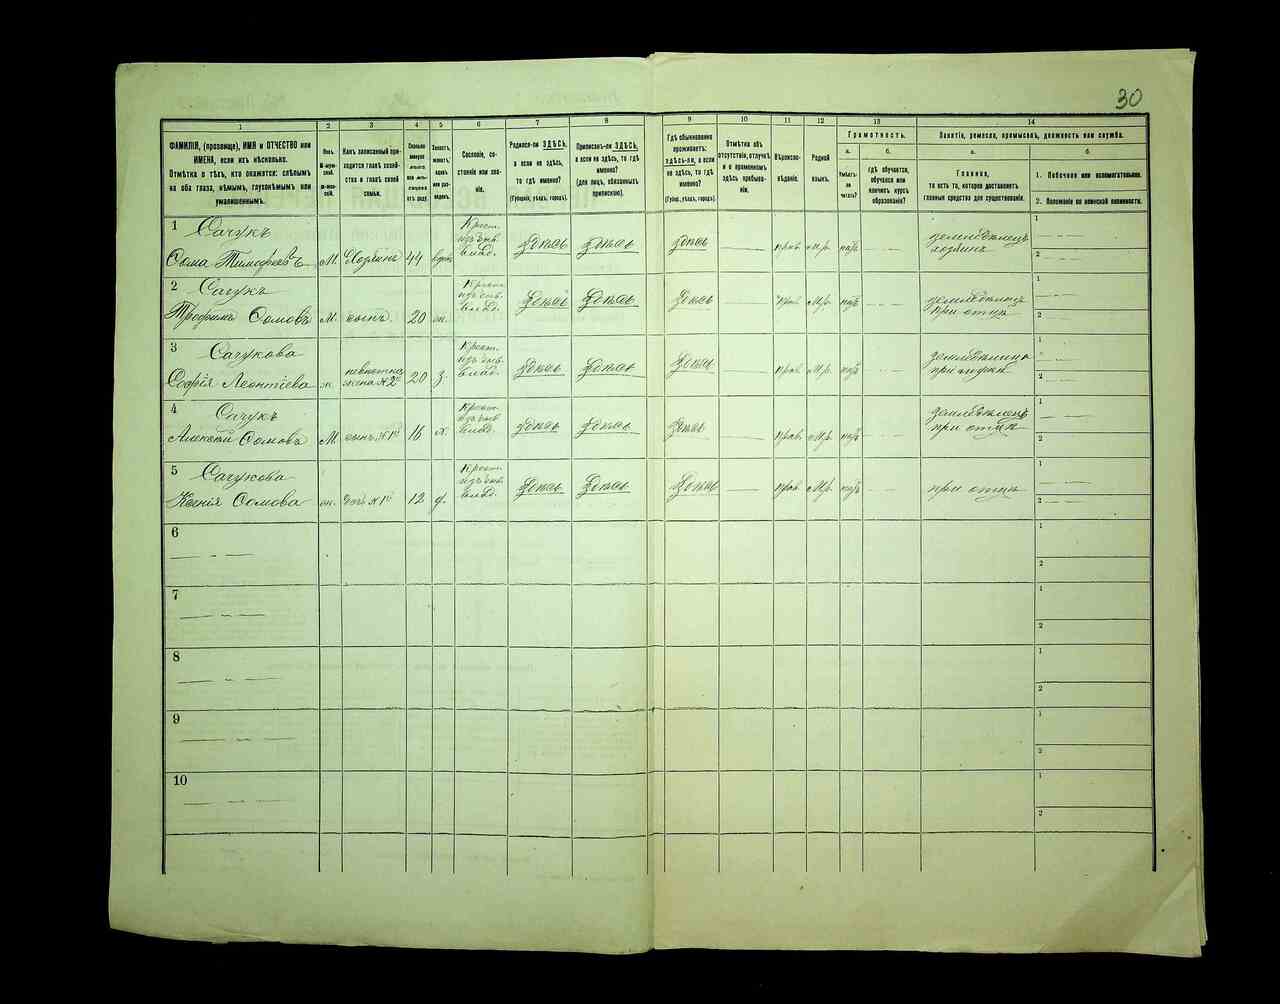 30
1
2
3
4
5
6
7
8
9
10
11
12
13
14
ФАМИЛІЯ, (прозвище), ИМЯ и ОТЧЕСТВО или
ИМЕНА, если ихъ нѣсколько.
Отмѣтка о тѣхъ, кто окажется: слѣпымъ
на оба глаза, нѣмымъ, глухонѣмымъ или
умалишеннымъ.
Полъ.
М-муж-
ской.
Ж-жен-
скій.
Какъ записанный при-
ходится главѣ хозяй-
ства и главѣ своей
семьи.
Сколько
минуло
лѣтъ
или мѣ-
сяцевъ
отъ роду.
Холостъ,
женатъ,
вдовъ
или раз-
веденъ.
Сословіе, со-
стояніе или зва-
ніе.
Родился-ли ЗДѢСЬ,
а если не здѣсь,
то гдѣ именно?
(Губернія, уѣздъ, городъ).
Приписанъ-ли ЗДѢСЬ,
а если не здѣсь, то гдѣ
именно?
(для лицъ, обязанныхъ
припискою).
Гдѣ обыкновенно
проживаетъ:
здѣсь-ли, а если
не здѣсь, то гдѣ
именно?
(Губер., уѣздъ, городъ).
Отмѣтка объ
отсутствіи, отлучкѣ
и о временномъ
здѣсь пребыва-
ніи.
Вѣроиспо-
вѣданіе.
Родной
языкъ.
Грамотность.
а.
Умѣетъ-
ли
читать?
б.
гдѣ обучается,
обучался или
кончилъ курсъ
образованія?
Занятіе, ремесло, промыселъ, должность или служба.
а.
Главное,
то есть то, которое доставляетъ
главныя средства для существованія.
б.
1. Побочное или вспомогательное.
2. Положеніе по воинской повинности.
1 Сачукъ
Сома Тимофеевъ М. Хозяинъ 44 вдовъ Крест. изъ быв. влад. здѣсь здѣсь здѣсь — прав. М.р. нѣтъ — — земледѣлецъ хозяинъ 1 — — 2 — —
2 Сачукъ
Трофимъ Сомовъ М. сынъ. 20 ж. Крест. изъ быв. влад. здѣсь здѣсь здѣсь — прав. М.р. нѣтъ — — земледѣлецъ при отцѣ 1 — — 2 — —
3 Сачукова
Софія Леонтіева ж. невѣстка жена №2го 20 з. Крест. изъ быв. влад. здѣсь здѣсь здѣсь — прав. М.р. нѣтъ — — земледѣлица при мужѣ 1 — — 2 — —
4 Сачукъ
Алексѣй Сомовъ М. сынъ №1го 16 х. Крест. изъ быв. влад. здѣсь здѣсь здѣсь — прав. М.р. нѣтъ — — земледѣлецъ при отцѣ 1 — — 2 — —
5 Сачукова
Ксенія Сомова ж. дочь №1го 12 д. Крест. изъ быв. влад. здѣсь здѣсь здѣсь — прав. М.р. нѣтъ — — при отцѣ 1 — — 2 — —
6 — — — 1 2
7 — — — 1 2
8 — — — 1 2
9 — — — 1 2
10 — — — 1 2